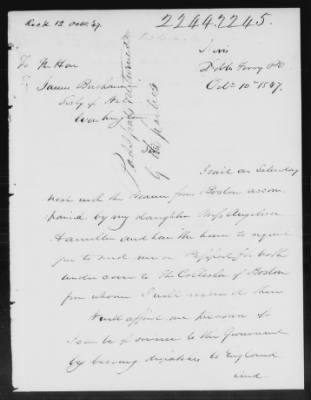 Recd 12 Oct. 47.
22442245.
Nevis
Dobbs Ferry P.O.
Oct. 10th 1847.
To the Hon
James Buchanan
Secty of State
Washington
Passports returned
by the
I sail on Saturday
next in the Steamer from Boston accom
panied by my daughter Miss Angelica
Hamilton and have the honor to request
you to send me a Passport for both
under cover to the Collector of Boston
from whom I will receive them
It will afford me pleasure if
I can be of service to the Government
by bearing despatches to England
and